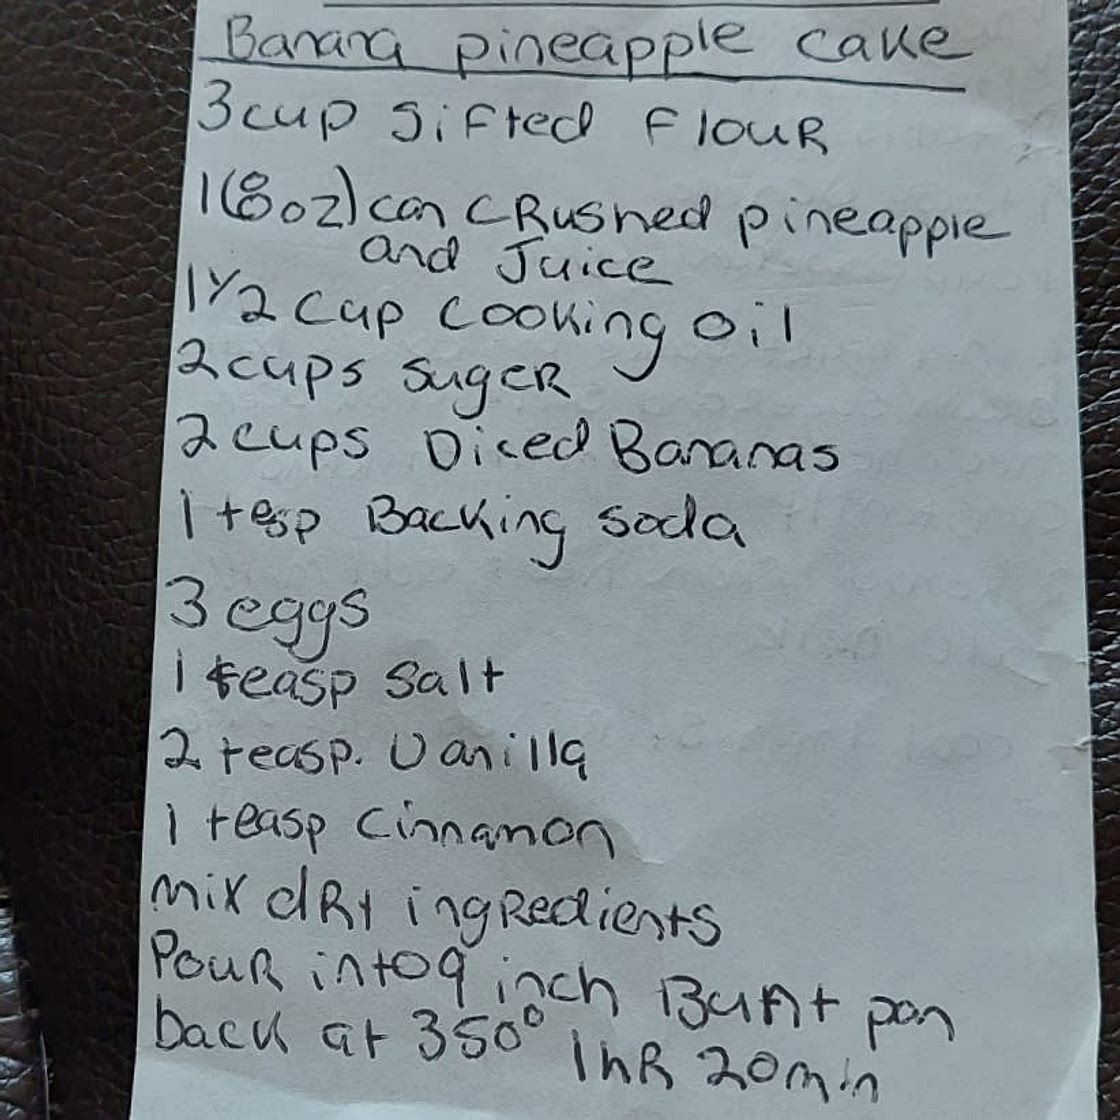 Banana pineapple cake
3 cup sifted flour
1 (8oz) can crushed pineapple
and Juice
1 1/2 cup cooking oil
2 cups suger
2 cups Diced Bananas
1 tesp Backing soda
3 eggs
1 teasp salt
2 teasp. Vanilla
1 teasp cinnamon
mix dry ingredients
Pour into 9 inch Bunt pan
back at 350° 1hR 20min